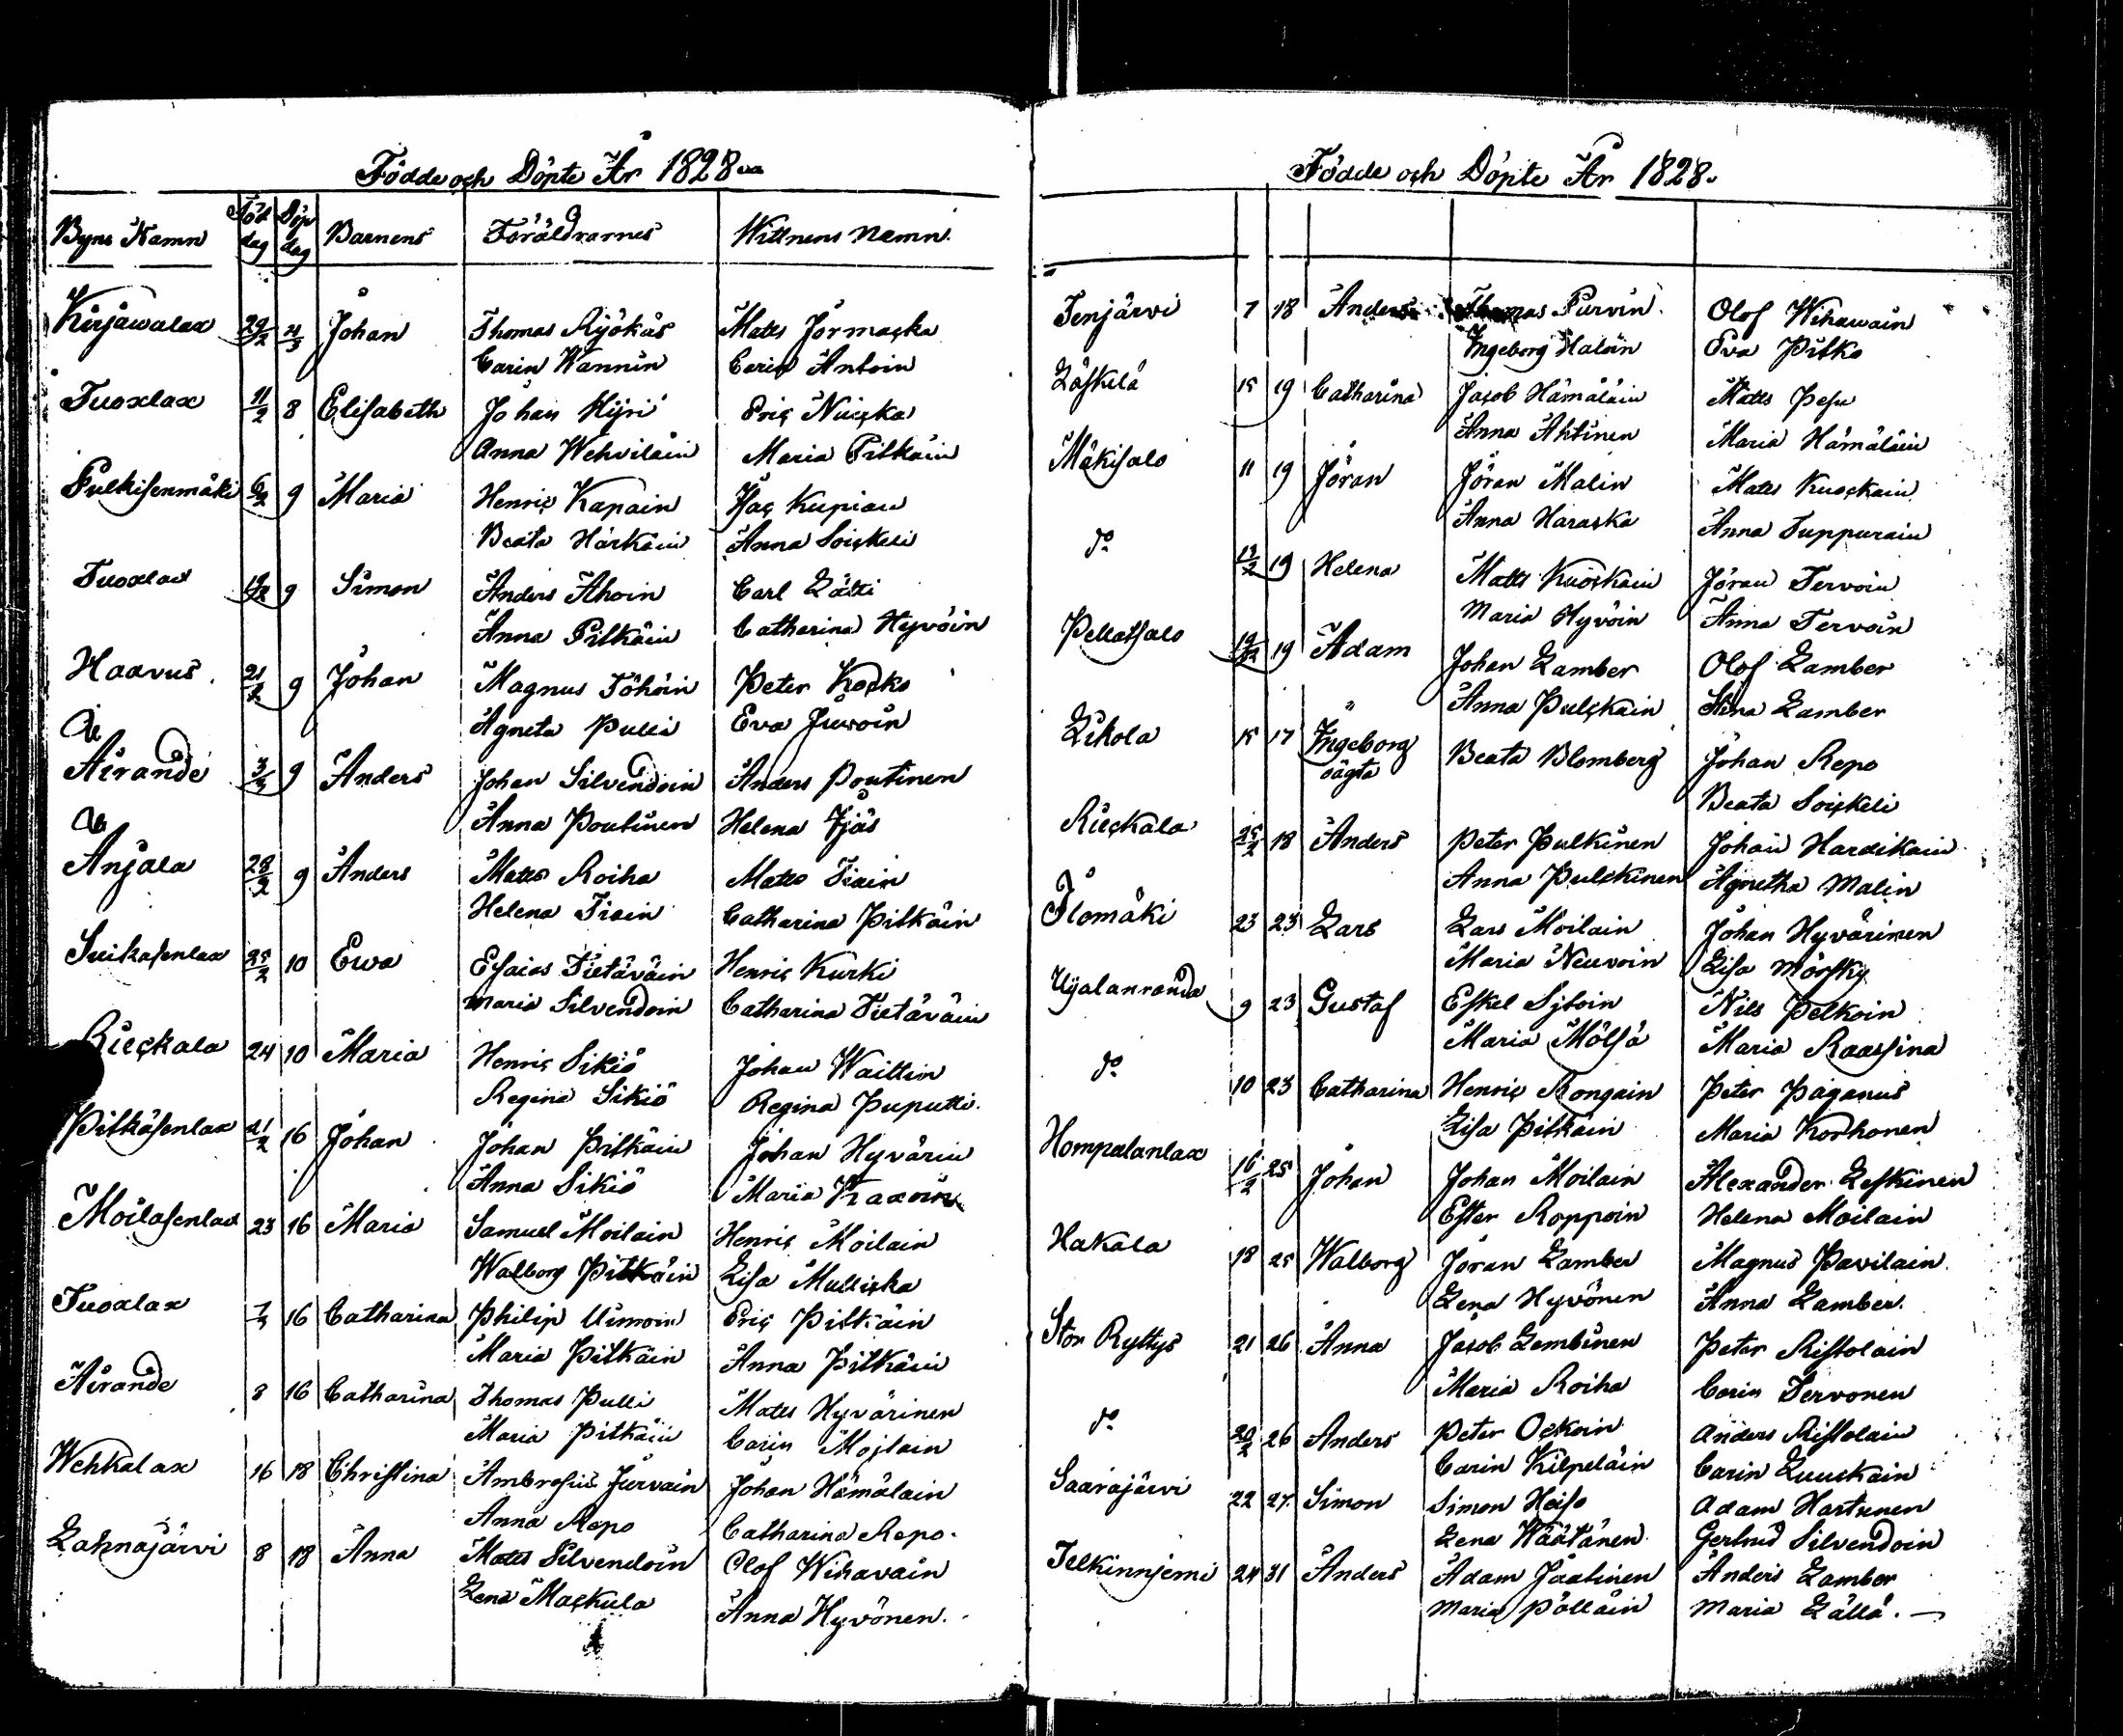 Födde och Döpte År 1828
Byns Namn Föd dag Döp dag Barnens Föräldrarnes Wittnens Namn.
Kirjawalax 29/2 4/3 Johan Thomas Ryökäs Matts Jormacka
Carin Wannin Carin Antoin
Tuoxlax 11/2 8 Elisabeth Johan Kijri Eric Nuicka
Anna Wehviläin Maria Pitkäin
Pulkisenmäki 6/2 9 Maria Henric Kapain Isac Kupiain
Beata Härkäin Anna Soickeli
Tuoxlax 19/2 9 Simon Anders Ahoin Carl Lätti
Anna Pitkäin Catharina Hyvöin
Haavus 21/2 9 Johan Magnus Töhöin Peter Kocko
Agneta Pulli Eva Juvoin
Airande 3/3 9 Anders Johan Silvendoin Anders Poutinen
Anna Poutinen Helena Ijäs
Anjala 28/2 9 Anders Matts Roiha Matts Tiain
Helena Tiain Catharina Pitkäin
Suikasenlax 25/2 10 Ewa Esaias Tietäväin Henric Kurki
Maria Silvendoin Catharina Tietäväin
Rieckala 24 10 Maria Henric Sikiö Johan Waittin
Regina Sikiö Regina Puputti.
Pitkäsenlax 21/2 16 Johan Johan Pitkäin Johan Hyvärin
Anna Sikiö Maria
Moilasenlax 23 16 Maria Samuel Moilain Henric Moilain
Walborg Pitkäin Lisa Mullicka
Tuoxlax 7/3 16 Catharina Philip Uimoin Eric Pitkäin
Maria Pitkäin Anna Pitkäin
Airande 8 16 Catharina Thomas Pulli Matts Hyvärinen
Maria Pitkäin Carin Mojlain
Wehkalax 16 18 Christina Ambrosius Jurvain Johan Hämäläin
Anna Repo Catharina Repo.
Lahnajärvi 8 18 Anna Matts Silvendoin Olof Wihavain
Lena Mackula Anna Hyvönen.
Födde och Döpte År 1828.
Jenjärvi 7 18 Anders Thomas Purvin Olof Wihawain
Ingeborg Halain Eva Pitko
Läskelä 15 19 Catharina Jacob Hämäläin Matts Pesu
Anna Ahtinen Maria Hämäläin
Mäkisalo 11 19 Jöran Jöran Malin Matts Kuockain
Anna Haracka Anna Tuppurain
do 12/2 19 Helena Matts Kuockain Jöran Tervoin
Maria Hyvöin Anna Tervoin
Pellotsalo 19/2 19 Adam Johan Lamber Olof Lamber
Anna Pulckain Stina Lamber
Likola 15 17 Ingeborg Beata Blomberg Johan Repo
oägta Beata Soickeli
Rieckala 25/2 18 Anders Peter Pulkinen Johan Hardikain
Anna Pulckinen Agnetha Malin
Ilomäki 23 23 Lars Lars Moilain Johan Hyvärinen
Maria Neuvoin Lisa Mörsky
Ujalanranda 9 23 Gustaf Eskel Sitoin Nils Pelkoin
Maria Mölsä Maria Raassina
do 10 23 Catharina Henric Rongain Peter Paganus
Lisa Pitkäin Maria Korhonen
Hompalanlax 16/2 25 Johan Johan Moilain Alexander Leskinen
Ester Roppoin Helena Moilain
Hakala 18 25 Walborg Jöran Lamber Magnus Pavilain
Lena Hyvönen Anna Lamber.
Stor Ryttys 21 26 Anna Jacob Lembinen Peter Ristolain
Maria Roiha Carin Tervonen
do 20/2 26 Anders Peter Ockoin Anders Ristolain
Carin Kilpeläin Carin Luuckain
Saarajärvi 22 27 Simon Simon Heiso Adam Hartunen
Lena Wäätänen Gertrud Silvendoin
Telkinnjemi 24 31 Anders Adam Jäätinen Anders Lamber
Maria Pölläin Maria Lällä.